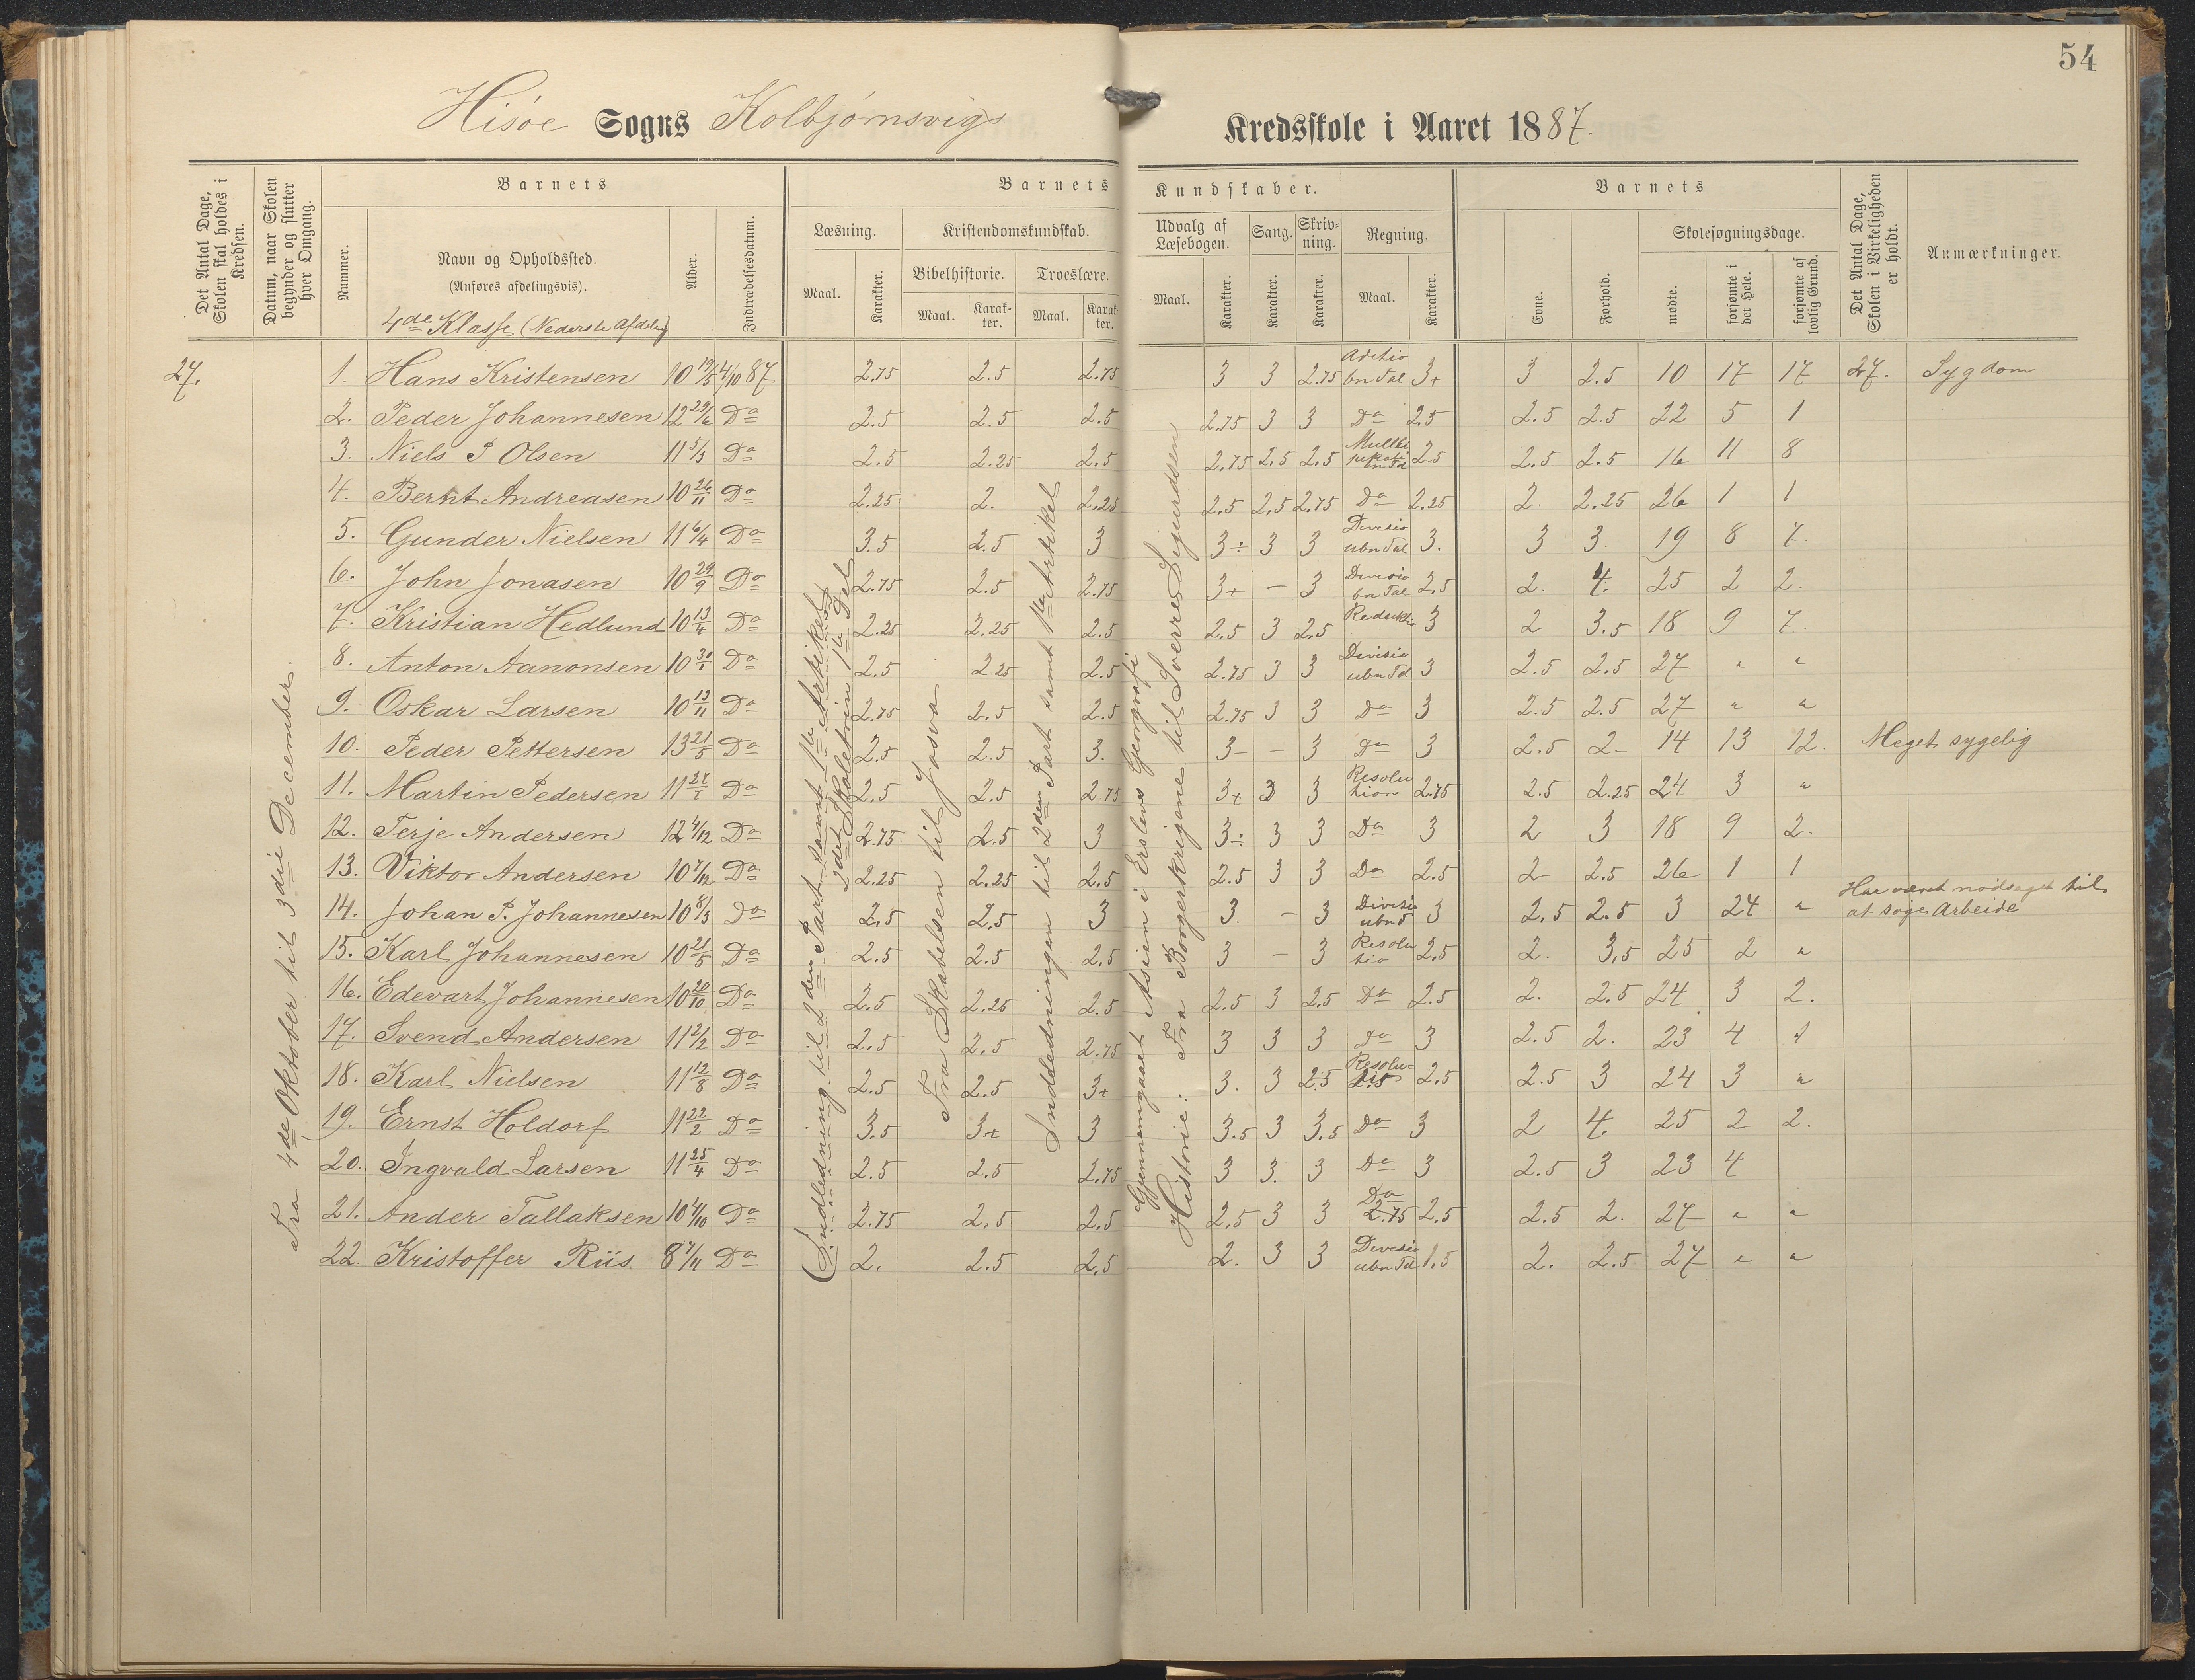 54
Hisøe Sogns Kolbjørnsvigs Kredsskole i Aaret 1887.
Det Antal Dage, Skolen skal holdes i Kredsen.
Datum, naar Skolen begynder og slutter hver Omgang.
Barnets
Nummer.
Navn og Opholdssted.
(Anføres afdelingsvis).
4de Klasse (Nederste Afdeling)
Alder.
Indtrædelsesdatum.
Barnets Kundskaber.
Læsning.
Maal.
Karakter.
Kristendomskundskab.
Bibelhistorie.
Maal.
Karakter.
Troeslære.
Maal.
Karakter.
Udvalg af Læsebogen.
Maal.
Karakter.
Sang.
Karakter.
Skrivning.
Karakter.
Regning.
Maal.
Karakter.
Barnets
Evne.
Forhold.
Skolesøgningsdage.
mødte.
forsømte i det Hele.
forsømte af lovlig Grund.
Det Antal Dage, Skolen i Virkeligheden er holdt.
Anmærkninger.
27.
Fra 4de Oktober til 3die December.
Indledning til 2den Part samt 1ste Artikel
2det Skoletrin 1ste Del
Fra Skabelsen til Josva
Indledningen til 2den Part samt 1ste Artikel
Gjennemgaaet Asien i Erslevs Geografi
Historie: Fra Borgerkrigene til Sverre Sigurdssen
1. Hans Kristensen 10 19/5 4/10 87 2.75 2.5 2.75 3 3 2.75 Aditio bn Tal 3+ 3 2.5 10 17 17 27. Sygdom
2. Peder Johannesen 12 29/6 Do 2.5 2.5 2.5 2.75 3 3 Do 2.5 2.5 2.5 22 5 1
3. Niels P Olsen 11 5/3 Do 2.5 2.25 2.5 2.75 2.5 2.5 Multiplikati bn Td 2.5 2.5 2.5 16 11 8
4. Bernt Andreasen 10 26/11 Do 2.25 2. 2.25 2.5 2.5 2.75 Do 2.25 2. 2.25 26 1 1
5. Gunder Nielsen 11 6/4 Do 3.5 2.5 3 3÷ 3 3 Divisio ubn Tal 3. 3 3. 19 8 7.
6. John Jonasen 10 29/9 Do 2.75 2.5 2.75 3+ - 3 Divisio bn Tal 2.5 2. 4. 25 2 2.
7. Kristian Hedlund 10 13/4 Do 2.25 2.25 2.5 2.5 3 2.5 Reduktio 3 2 3.5 18 9 7.
8. Anton Aanonsen 10 30/1 Do 2.5 2.25 2.5 2.75 3 3 Divisio ubn Td 3 2.5 2.5 27 " "
9. Oskar Larsen 10 13/11 Do 2.75 2.5 2.5 2.75 3 3 Do 3 2.5 2.5 27 " "
10. Peder Pettersen 13 21/5 Do 2.5 2.5 3. 3- - 3 Do 3 2.5 2- 14 13 12. Meget sygelig
11. Martin Pedersen 11 27/1 Do 2.5 2.5 2.75 3+ 3 3 Resolution 2.75 2.5 2.25 24 3 "
12. Terje Andersen 12 4/12 Do 2.75 2.5 3 3÷ 3 3 Do 3 2 3 18 9 2.
13. Viktor Andersen 10 7/12 Do 2.25 2.25 2.5 2.5 3 3 Do 2.5 2- 2.5 26 1 1
14. Johan P. Johannesen 10 8/3 Do 2.5 2.5 3 3. - 3 Divisio ubn T 3 2.5 2.5 3 24 " Har været nødsaget til at søge Arbeide
15. Karl Johannesen 10 21/5 Do 2.5 2.5 2.5 3 - 3 Resolutio 2.5 2. 3.5 25 2 "
16. Edevart Johannesen 10 20/10 Do 2.5 2.25 2.5 2.5 3 2.5 Do 2.5 2. 2.5 24 3 2.
17. Svend Andersen 11 2/12 Do 2.5 2.5 2.75 3 3 3 Do 3 2.5 2. 23 4 1
18. Karl Nielsen 11 12/8 Do 2.5 2.5 3+ 3. 3 2.5 Resolutio 2.5 2.5 3 24 3 "
19. Ernst Holdorf 11 22/2 Do 3.5 3+ 3 3.5 3 3.5 Do 3 2 4. 25 2 2.
20. Ingvald Larsen 11 25/4 Do 2.5 2.5 2.75 3 3. 3 Do 3 2.5 3 23 4
21. Ander Tallaksen 10 4/10 Do 2.75 2.5 2.5 2.5 3 3 Do 2.75 2.5 2.5 2. 27 " "
22. Kristoffer Riis 8 7/11 Do 2. 2.5 2.5 2. 3 3 Divisio ubn Td 1.5 2. 2.5 27 " "